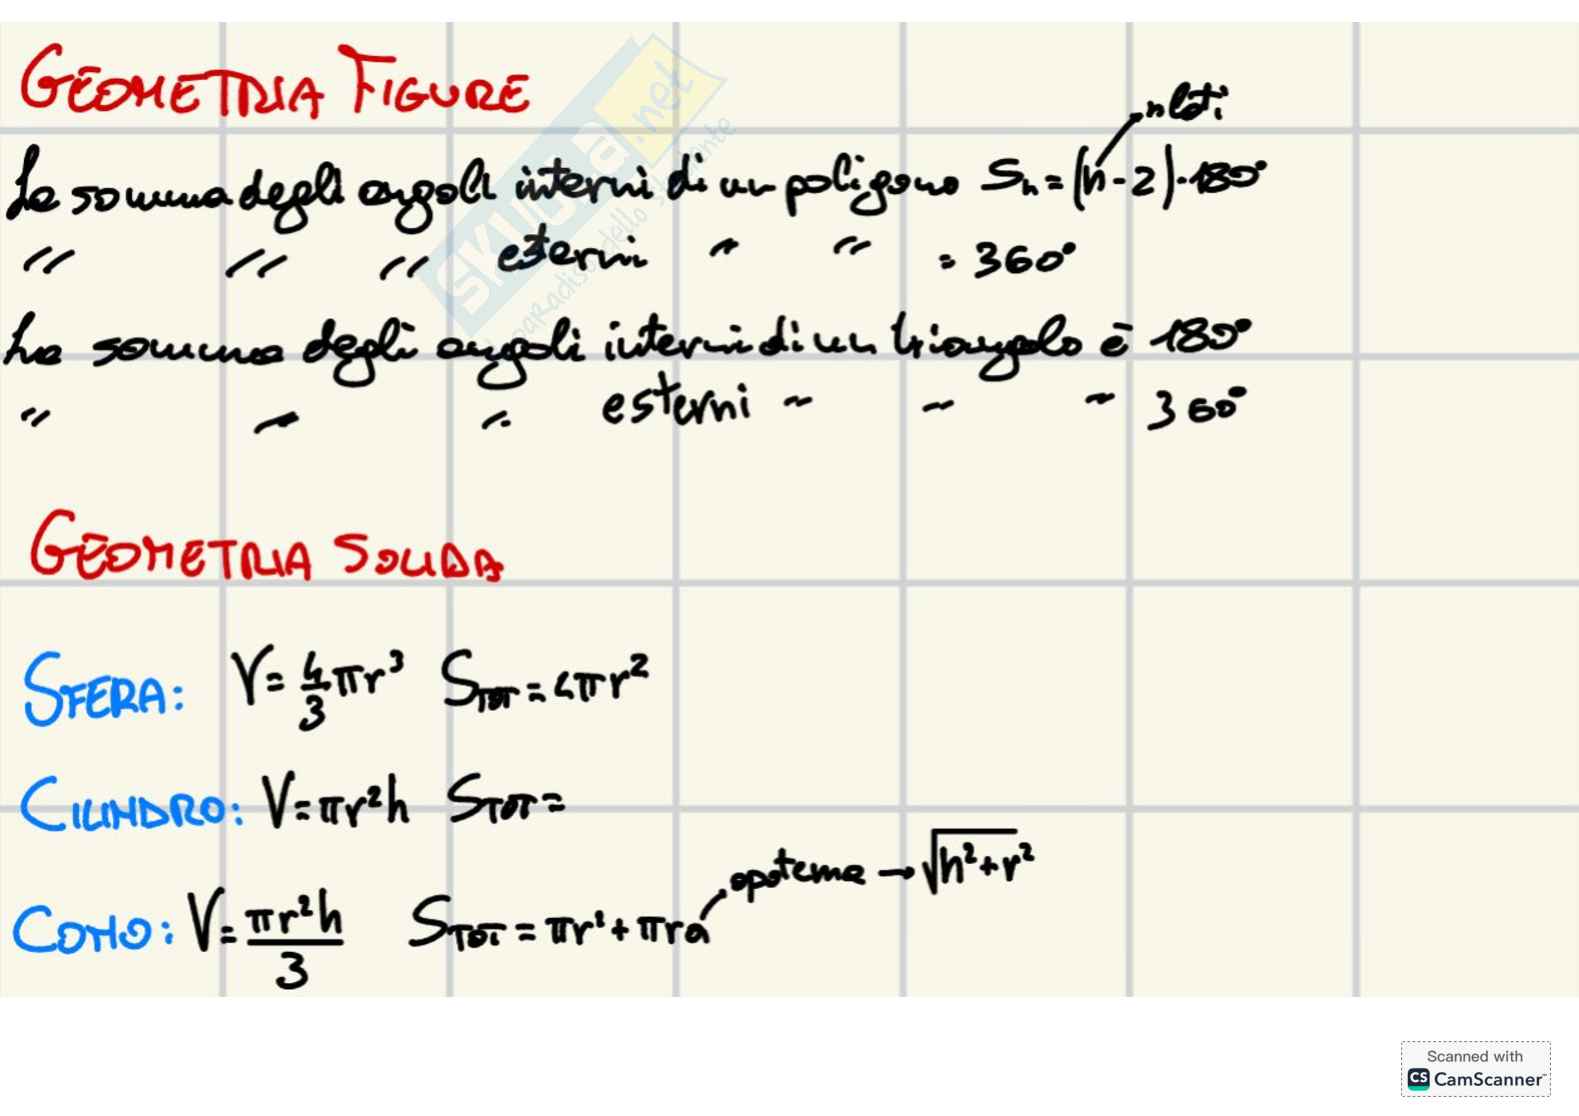 GEOMETRIA FIGURE
n lati
La somma degli angoli interni di un poligono Sn = (n-2)·180°
" " " esterni " " = 360°
La somma degli angoli interni di un triangolo è 180°
" " " esterni " " " 360°
GEOMETRIA SOLIDA
SFERA: V = 4/3 πr³ STOT = 4πr²
CILINDRO: V = πr²h STOT =
apotema → √h²+r²
CONO: V = πr²h/3 STOT = πr² + πra
SKUOLA.net
il paradiso dello studente
Scanned with
CS CamScanner